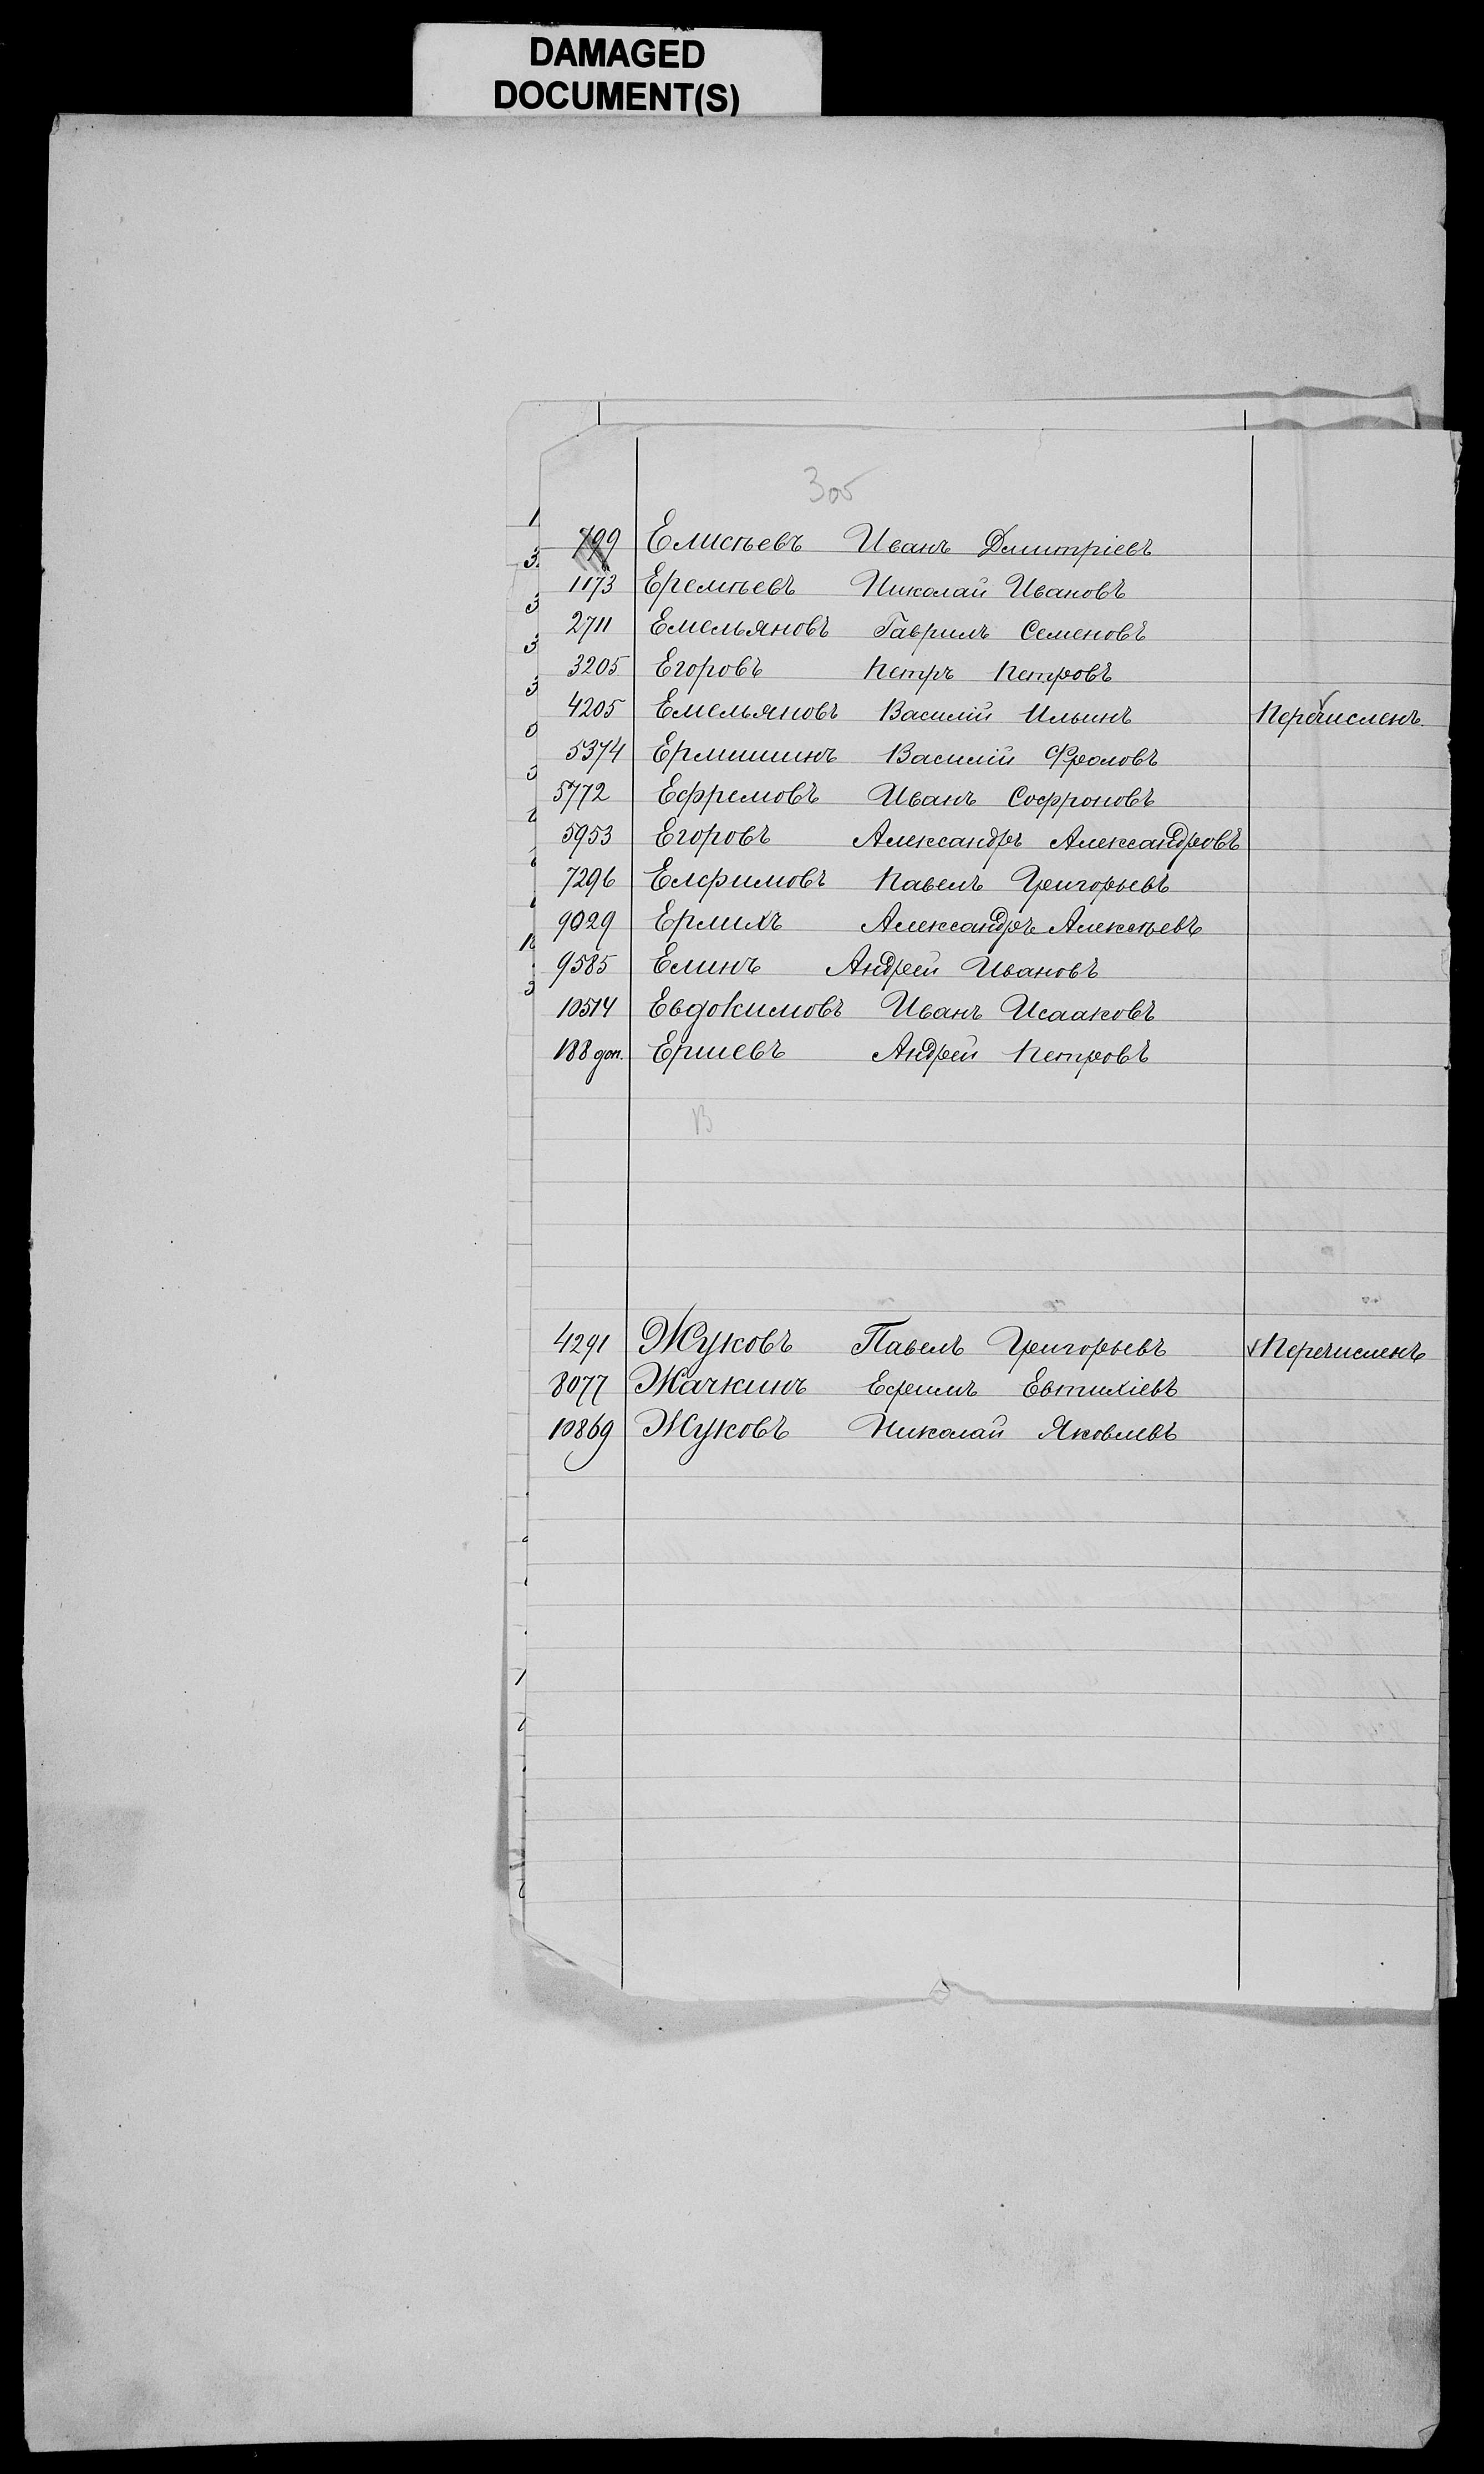 DAMAGED
DOCUMENT(S)
3об
799 Елисѣевъ Иванъ Дмитріевъ
1173 Еремѣевъ Николай Ивановъ
2711 Емельяновъ Гаврилъ Семеновъ
3205 Егоровъ Петръ Петровъ
4205 Емельяновъ Василій Ильинъ Перечисленъ
5374 Ермишинъ Василій Фроловъ
5772 Ефремовъ Иванъ Софроновъ
5953 Егоровъ Александръ Александровъ
7296 Елфимовъ Павелъ Григорьевъ
9029 Ермихъ Александръ Алексѣевъ
9585 Елинъ Андрей Ивановъ
10514 Евдокимовъ Иванъ Исааковъ
188 доп. Ершевъ Андрей Петровъ
13
4291 Жуковъ Павелъ Григорьевъ √ Перечисленъ
8077 Жачкинъ Ефимъ Евтихіевъ
10869 Жуковъ Николай Яковлевъ